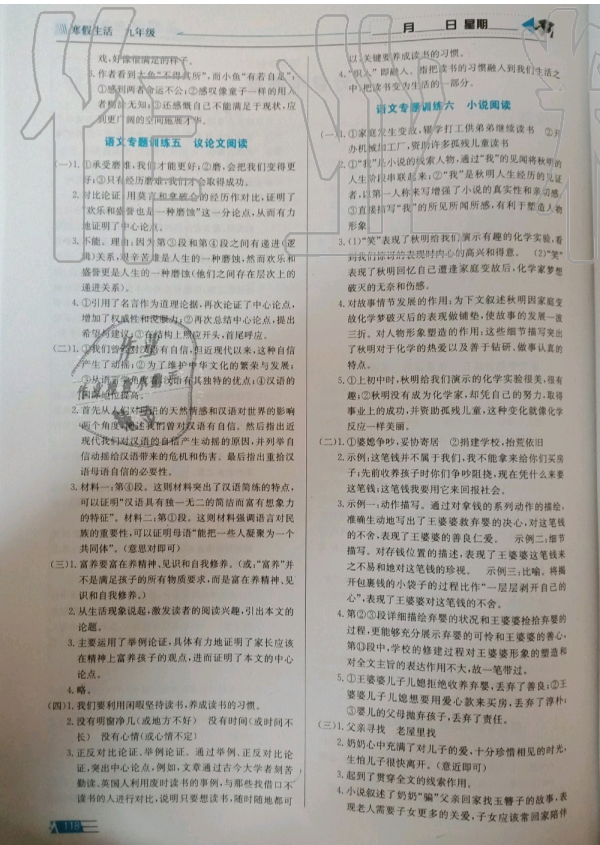 寒假生活 九年级
月 日 星期
戏,好像很满足的样子。
4. 作者看到大鱼“不得其所”,而小鱼“有若自足”:
①感到两者命运不公;②感慨像童子一样的用人
者糊涂无知;③还感慨自己不能满足于现状,应
到更广阔的空间施展才华。
语文专题训练五 议论文阅读
(一)1. ①承受磨难,我们才能更好;②磨,会把我们变得更
好;③只有经历磨难,我们才会取得成功。
论证,证明了
“欢乐和盛誉是一种磨蚀”这一分论点,从而有力
地证明了中心论点。
3. 不能。理由,因为第③段和第④段之间有递进(逻
辑)关系,艰辛苦难是人生的一种磨蚀,然而欢乐和
盛誉更是人生的一种磨蚀(他们之间存在层次上的
递进关系)。
4. ①引用了名言作为道理论据,再次论证了中心论点,
增加了权威性和说服力;②再次总结中心论点,提出
希望与建议;③在结构上照应开头,首尾呼应。
(二)1. ①我们曾经对汉语有自信,但近现代以来,这种自信
产生了动摇;②为了维护中华文化的繁荣与发展;
语有其独特的优点;④汉语的
国
2. 首先从人们对汉语的天然情感和汉语对世界的影响
两个角度
现代我们对汉语的自信产生动摇的原因,并列举自
信动摇给汉语带来的危机和伤害。最后指出重拾汉
语母语自信的必要性。
3. 材料一:第④段。这则材料突出了汉语简练的特点,
可以证明“汉语具有独一无二的简洁而富有想象力
的特征”。材料二:第⑤段。这则材料强调语言对民
族的重要性,可以证明母语“能把一些人凝聚为一个
共同体”。(意思对即可)
(三)1. 富养要富在养精神、见识和自我修养。(或:“富养”并
不是满足孩子的所有物质要求,而是富在养精神、见
识和自我修养。)
2. 从生活现象说起,激发读者的阅读兴趣,引出本文的
论题。
3. 主要运用了举例论证,具体有力地证明了家长应该
在精神上富养孩子的观点,进而证明了本文的中心
论点。
4. 略。
(四)1. 我们要利用闲暇坚持读书,养成读书的习惯。
2. 没有明窗净几(或地方不好) 没有时间(或时间不
长) 没有心情(或心情不整)
3. 正反对比论证、举例论证。通过举例、正反对比论
证,突出中心论点,例如,文章通过古今大学者刻苦
勤读、英国人利用废时读书的事例,与那些找借口不
读书的人进行对比,说明只要想读书,随时随地都可
118
以,关键要养成读书的习惯。
4. “织入”即融入。指把读书的习惯融入到我们生活之
中,把读书变为生活的一部分。
语文专题训练六 小说阅读
(一)1. ①家庭发生变故,辍学打工供弟弟继续读书 ②开
办机械加工厂,资助许多孤残儿童读书
2. ①“我”是小说的线索人物,通过“我”的见闻将秋明的
人生阶段串联起来;②“我”是秋明人生经历的见证
者,以第一人称来写增强了小说的真实性和亲切感;
③直接描写“我”的所见所闻所感,有利于塑造人物
形象
3. (1)“笑”表现了秋明给我们演示有趣的化学实验,看
到我们惊讶的表现时内心的高兴和得意。 (2)“笑”
表现了秋明回忆自己遭遇家庭变故后,化学家梦想
破灭的无奈和伤感。
4. 对故事情节发展的作用:为下文叙述秋明因家庭变
故化学梦破灭后的表现做铺垫,使故事情节一波三
折。对人物形象塑造的作用:这些描写突出表现了
秋明对于化学的热爱以及善于钻研、做事认真的
特点。
5. ①上初中时,秋明给我们演示的化学实验很美,很有
趣;②秋明没有成为化学家,却凭自己的努力,取得
事业上的成功,并资助孤残儿童,这种变化就像化学
反应一样美丽。
(二)1. ①婆媳争吵,妥协寄居 ②捐建学校,抬荒依旧
2. 示例:这笔钱并不属于我们,我不能拿来给你们买房
子;先前收养孩子时你们争吵阻挠,现在凭什么来要
这笔钱;这笔钱我要用它来回报社会。
3. 示例一:动作描写。通过对拿钱的系列动作的描绘,
准确生动地写出了王婆婆救弃婴的决心,对这笔钱
的不舍,表现了王婆婆的善良仁爱。 示例二:细节
描写。对存钱位置的描述,表现了王婆婆这笔钱来
之不易和她对这笔钱的珍视。 示例三:比喻。将揭
开包裹钱的小袋子的过程比作“一层层剥开自己的
心”,表现了王婆婆对这笔钱的不舍。
4. 第②③段详细描绘弃婴的状况和王婆婆捡拾弃婴的
过程,更能够充分展示弃婴的可怜和王婆婆的善心,
第⑬段中,学校的修建过程对王婆婆形象的塑造和
对全文主旨的表达作用不大,故一笔带过。
5. ①王婆婆儿子儿媳拒绝收养弃婴,丢弃了善良;②王
婆婆儿子儿媳想要用爱心款来买房,丢弃了淳朴;
③婴儿的父母抛弃孩子,丢弃了责任。
(三)1. 父亲寻找 老屋里找
2. 奶奶心中充满了对儿子的爱,十分珍惜相见的时光,
生怕他很快离开。(意近即可)
3. 起到了贯穿全文的线索作用。
4. 小说叙述了奶奶“骗”父亲回家找玉簪子的故事,表
现老人需要子女更多的关爱,子女应常回家陪伴